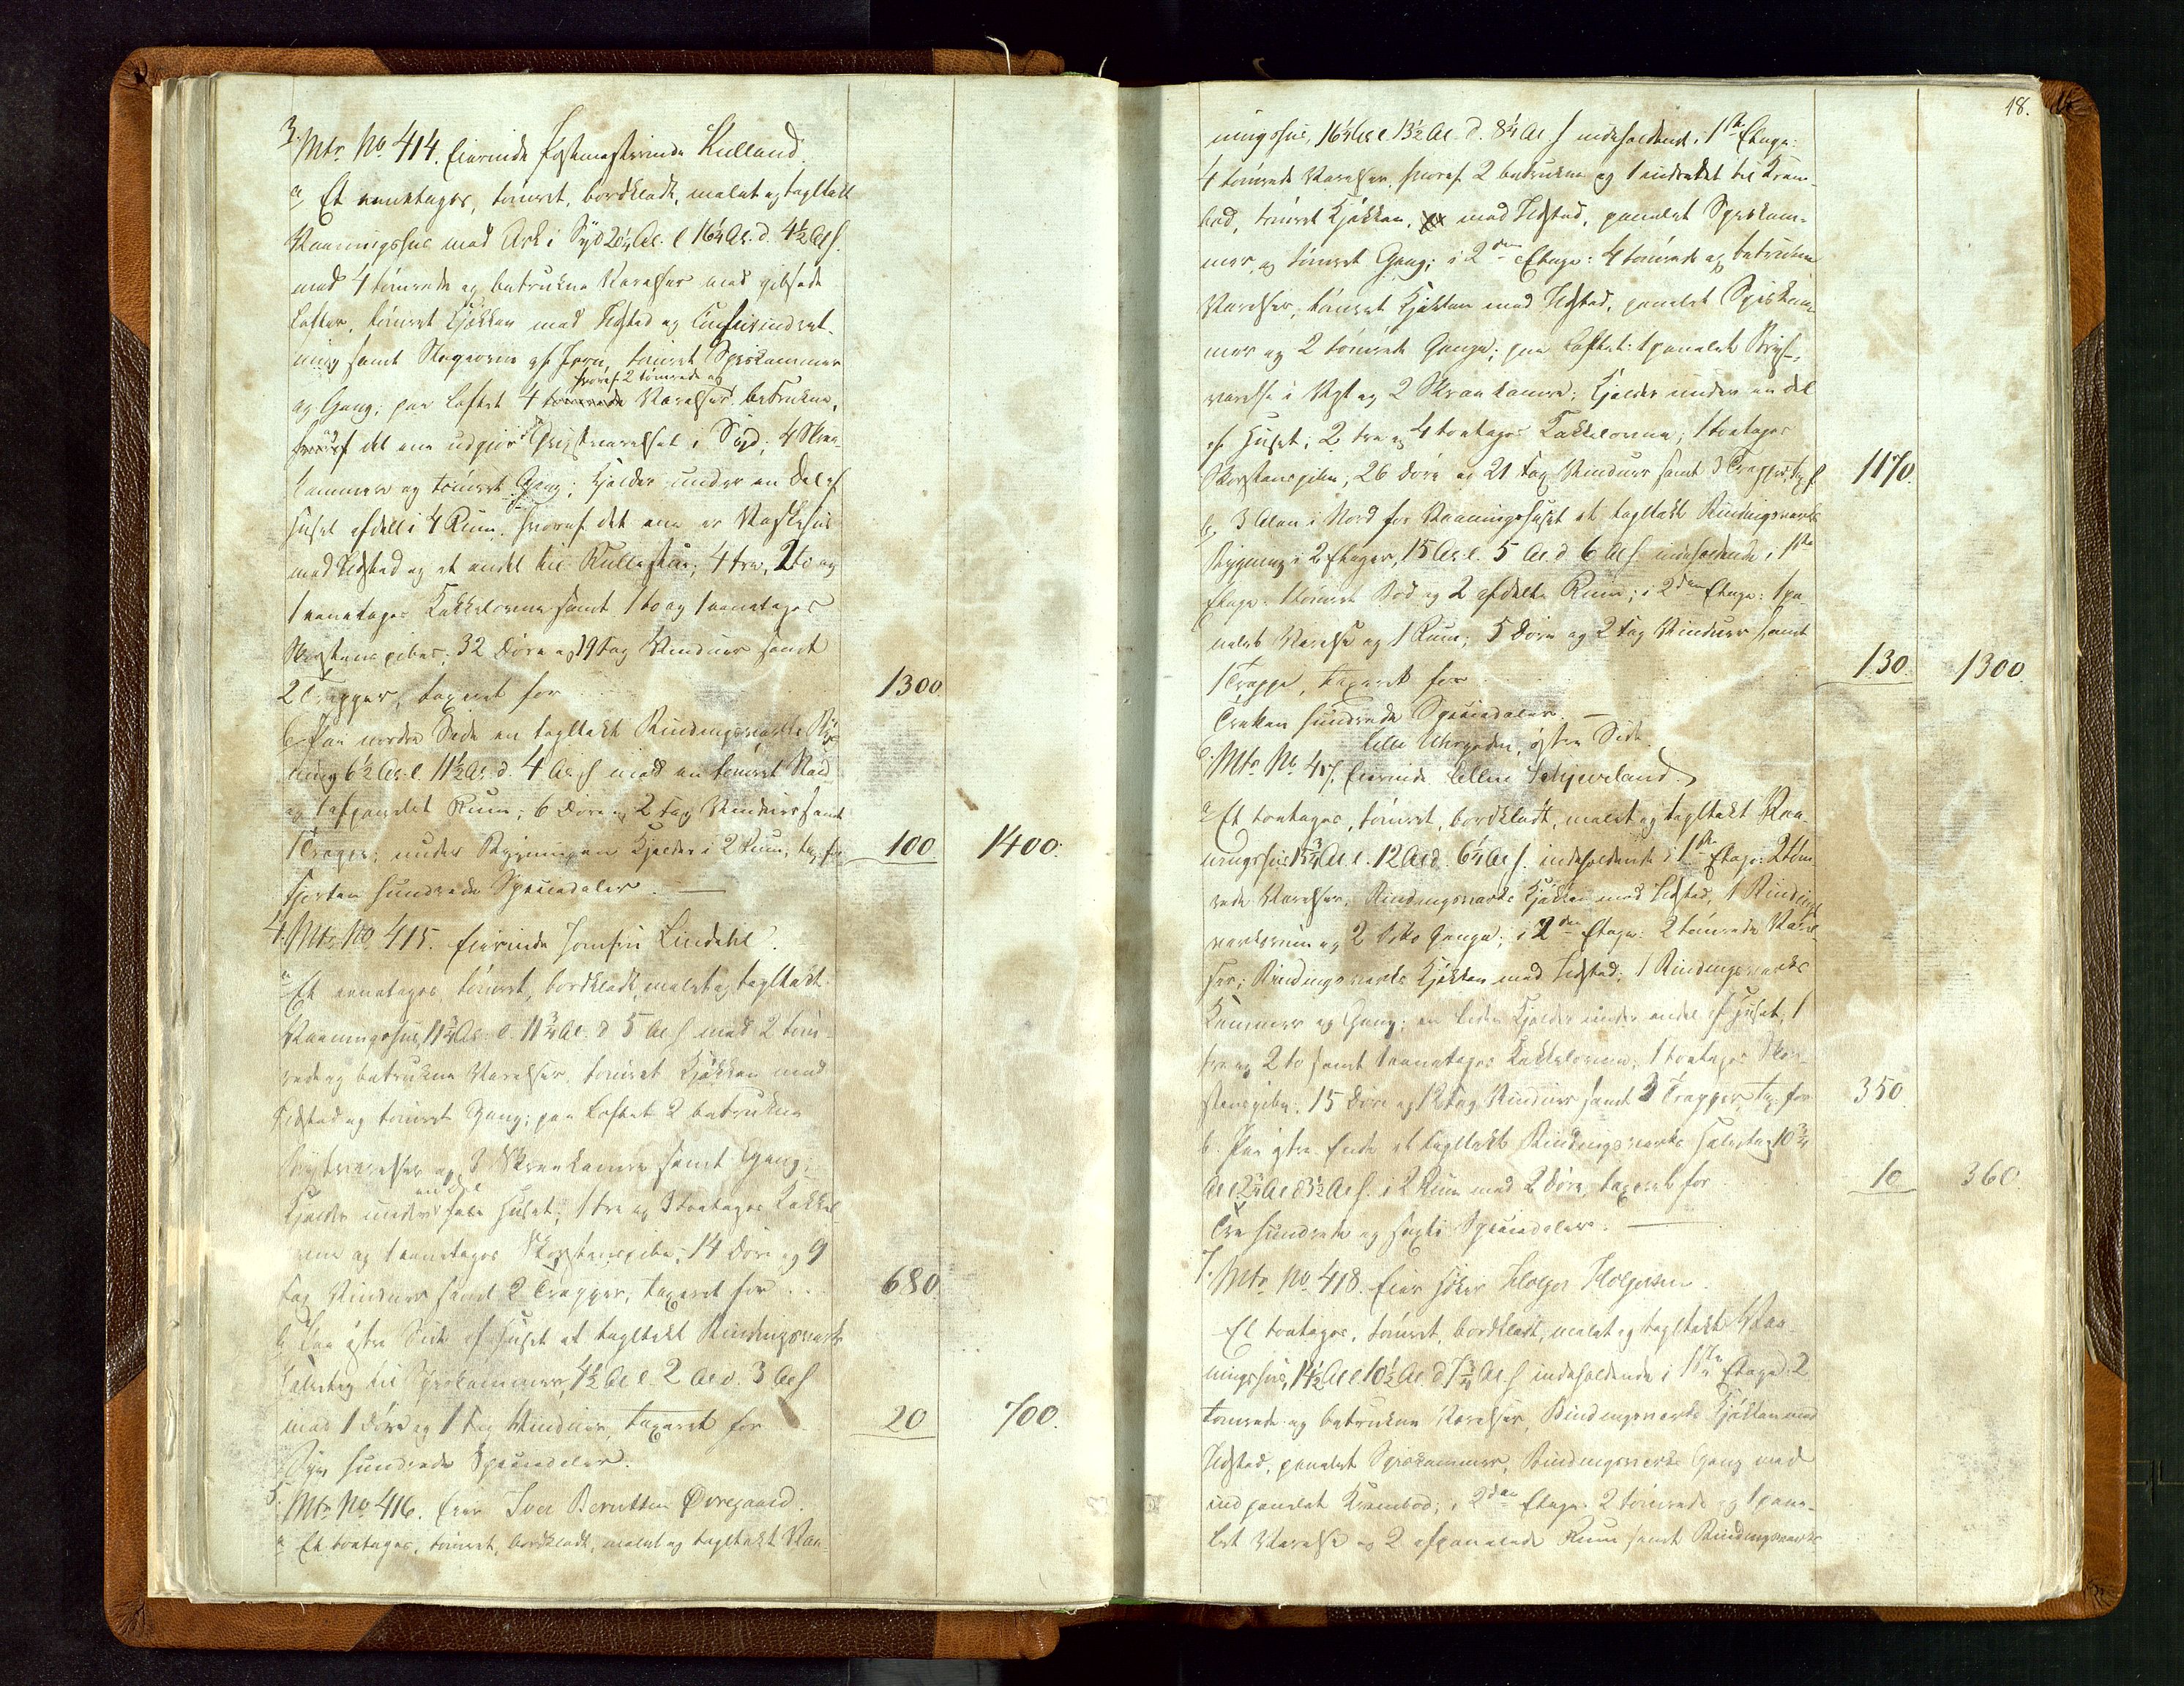 3. Mtr. No 414. Eierinde Postmesterinde Kielland.
a, Et eenetages, tømret, bordklædt, malet og tagltækt
Vaaningshus med Ark i Syd 20¼ Al. l. 16¼ Al. d. 4½ Al h.
med 4 tømrede og betrukne Værelser med gibsede
Lofter, tømret Kjøkken med Ildsted og Comfurindret-
ning samt Stegeovn af Jern, tømret Spiskammer
og Gang; paa Loftet 4 hvoraf 2 tømrede og Værelser betrukne,
hvoraf det ene udgjør Qvistværelset i Syd; 4 Skraa-
kammere og tømret Gang; Kjelder under en Del af
Huset afdelt i 4 Rum, hvoraf det ene er Vaskehus
med Ildsted og et andet til Rullestue; 4 tre, 2 to og
1 eenetages Kakkelovne samt 1 to og 1 eenetages
Skorstenspiber; 32 Døre og 19 Fag Vinduer samt
2 Trapper, taxeret for 1300
b, Paa nordre Side en tagltækt Bindingsværks Byg-
ning 6½ Al. l. 11½ Al. d. 4 Al. h med en tømret Bod
og 1 afpanelet Rum; 6 Døre og 2 Fag Vinduer samt
1 Trappe; under Bygningen Kjelder i 2 Rum, tax. for 100 1400.
Fjorten hundrede Speciedaler. —
4. Mtr. No 415. Eierinde Jomfru Lindahl.
a, Et eenetages, tømret, bordklædt, malet og tagltækt
Vaaningshus, 11¾ Al. l. 11¾ Al. d. 5 Al h med 2 tøm-
rede og betrukne Værelser, tømret Kjøkken med
Ildsted og tømret Gang; paa Loftet 2 betrukne
Qvistværelser og 3 Skraakamre samt Gang;
Kjelder under en Del Huset; 1 tre og 3 toetages Kakkel-
ovne og 1 eenetages Skorstenspibe; 14 Døre og 9
Fag Vinduer samt 2 Trapper, taxeret for .. 680.
b, Paa østre Side af Huset et tagltækt Bindingsværks
Halvtag til Spiskammer, 4½ Al l. 2 Al d. 3 Al h
med 1 Dør og 1 Fag Vinduer, taxeret for 20 700.
Syv hundrede Speciedaler.
5. Mtr. No 416. Eier Iver Berntsen Øvregaard.
a, Et toetages, tømret, bordklædt, malet og tagltækt Vaa-
18.
ningshus, 16¼ Al l. 13½ Al. d. 8¼ Al. h indeholdende i 1ste Etage:
4 tømrede Værelser, hvoraf 2 betrukne og 1 indredet til Kram-
bod, tømret Kjøkken, med Ildsted, panelet Spiskam-
mer, og tømret Gang; i 2den Etage: 4 tømrede og betrukne
Værelser, tømret Kjøkken med Ildsted, panelet Spiskam-
mer og 2 tømrede Gange; paa Loftet: 1 panelet Qvist-
værelse i Vest og 2 Skraakamre; Kjelder under en Del
af Huset; 2 tre og 4 toetages Kakkelovne; 1 toetages
Skorstenspibe, 26 Døre og 21 Fag Vinduer samt 3 Trapper, tax. f. 1170.
b, 3 Alen i Nord for Vaaningshuset et tagltækt Bindingsværks
Bygning i 2 Etager, 15 Al. l. 5 Al d 6 Al h. indeholdende i 1ste
Etage: 1 tømret Bod og 2 afdelte Rum; i 2den Etage: 1 pa-
nelet Værelse og 1 Rum, 5 Døre og 2 Fag Vinduer samt
1 Trappe, taxeret for 130. 1300.
Tretten hundrede Speciedaler. —
Lille Uhrgaden, østre Side.
6. Mtr. No 417. Eierinde Elline Schjæveland.
a, Et toetages, tømret, bordklædt, malet og tagltækt Vaa-
ningshus 15¾ Al l. 12 Al d. 6¼ Al h. indeholdende i 1ste Etage: 2 tøm-
rede Værelser, Bindingsværks Kjøkken med Ildsted, 1 Bindings-
værksrum og 2 dito Gange; i 2den Etage: 2 tømrede Værel-
ser, Bindingsværks Kjøkken med Ildsted, 1 Bindingsværks
Kammer og Gang; en liden Kjelder under endel af Huset, 1
tre og 2 to samt 1 eenetages Kakkelovne; 1 toetages Skor-
stenspibe. 15 Døre og 12 Fag Vinduer samt 3 Trapper, tax. for 350.
b. Paa østre Ende et tagltækt Bindingsværks Halvtag 10¾
Al l 2¾ Al d 3½ Al h. i 2 Rum med 2 Døre, taxeret for 10 360.
Tre hundrede og sexti Speciedaler. —
7. Mtr. No 418. Eier Høker Holger Holgersen.
Et toetages, tømret, bordklædt, malet og tagltækt Vaa-
ningshus, 14½ Al l 10½ Al. d 7¾ Al h indeholdende i 1ste Etage: 2
tømrede og betrukne Værelser, Bindingsværks Kjøkken med
Ildsted, panelet Spiskammer, Bindingsværks Gang med
indpanelet Krambod; i 2den Etage 2 tømrede og 1 pane-
let Værelse og 2 afpanelede Rum samt Bindingsværks